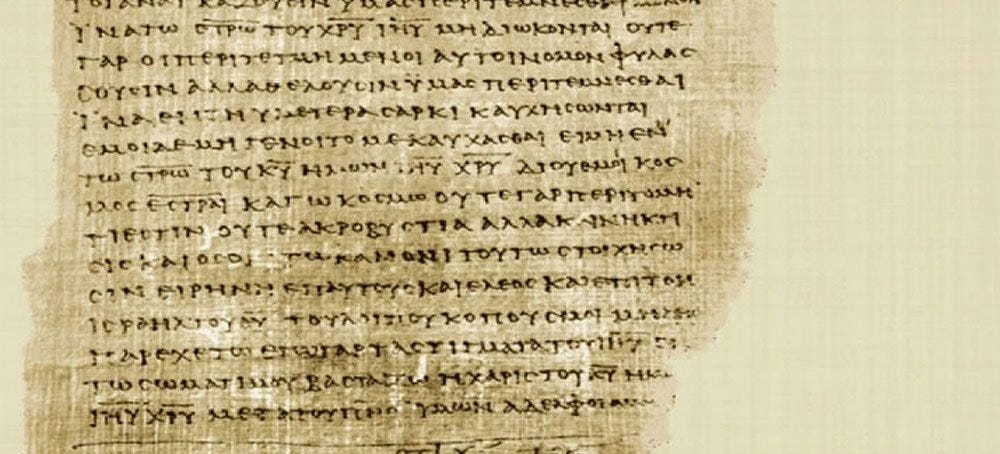 ΥΜΑϹ ΠΕΡΙΤΕΜΝΕϹΘΑΙ
ΪΝΑ ΤΩ Ϲ̅Τ̅Ρ̅Ω̅ ΤΟΥ Χ̅Ρ̅Υ̅ Ι̅Η̅Υ̅ ΜΗ ΔΙΩΚΟΝΤΑΙ ΟΥΤΕ
ΓΑΡ ΟΙ ΠΕΡΙΤΕΤΜΗΜΕΝΟΙ ΑΥΤΟΙ ΝΟΜΟΝ ΦΥΛΑϹ
ϹΟΥϹΙΝ ΑΛΛΑ ΘΕΛΟΥϹΙΝ ΫΜΑϹ ΠΕΡΙΤΕΜΝΕϹΘΑΙ
ΪΝΑ ΕΝ ΤΗ ΥΜΕΤΕΡΑ ϹΑΡΚΙ ΚΑΥΧΗϹΩΝΤΑΙ
ΕΜΟΙ ΔΕ ΜΗ ΓΕΝΟΙΤΟ ΜΕ ΚΑΥΧΑϹΘΑΙ ΕΙ ΜΗ ΕΝ
ΤΩ Ϲ̅Τ̅Ρ̅Ω̅ ΤΟΥ Κ̅Υ̅ ΗΜΩΝ Ι̅Η̅Υ̅ Χ̅Ρ̅Υ̅ ΔΙ ΟΥ ΕΜΟΙ ΚΟϹ
ΜΟϹ Ε̅Ϲ̅Τ̅Ρ̅Α̅Ι̅ ΚΑΓΩ ΚΟϹΜΩ ΟΥΤΕ ΓΑΡ ΠΕΡΙΤΟΜΗ
ΤΙ ΕϹΤΙΝ ΟΥΤΕ ΑΚΡΟΒΥϹΤΙΑ ΑΛΛΑ ΚΑΙΝΗ ΚΤΙ
ϹΙϹ ΚΑΙ ΟϹΟΙ ΤΩ ΚΑΝΟΝΙ ΤΟΥΤΩ ϹΤΟΙΧΗϹΩ
ϹΙΝ ΕΙΡΗΝΗ ΕΠ ΑΥΤΟΥϹ ΚΑΙ ΕΛΕΟϹ ΚΑΙ ΕΠΙ ΤΟΝ
ΙϹΡΑΗΛ ΤΟΥ Θ̅Υ̅ ΤΟΥ ΛΟΙΠΟΥ ΚΟΠΟΥϹ ΜΟΙ
ΠΑΡΕΧΕΤΩ ΕΓΩ ΓΑΡ ΤΑ ϹΤΙΓΜΑΤΑ ΤΟΥ Ι̅Η̅Υ̅
ΤΩ ϹΩΜΑΤΙ ΜΟΥ ΒΑϹΤΑΖΩ Η ΧΑΡΙϹ ΤΟΥ Κ̅Υ̅
Ι̅Η̅Υ̅ Χ̅Ρ̅Υ̅ ΜΕΤΑ ΤΟΥ ΫΜΩΝ ΑΔΕΛΦΟΙ